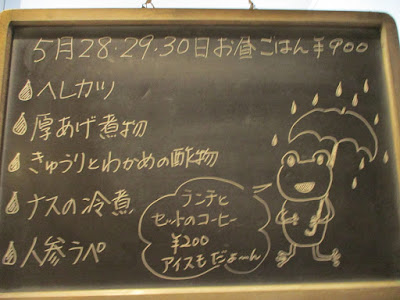 5月28・29・30日お昼ごはん¥900
ヘレカツ
厚あげ煮物
きゅうりとわかめの酢物
ナスの冷煮
人参ラペ
ランチと
セットのコーヒー
¥200
アイスもだょ〜ん